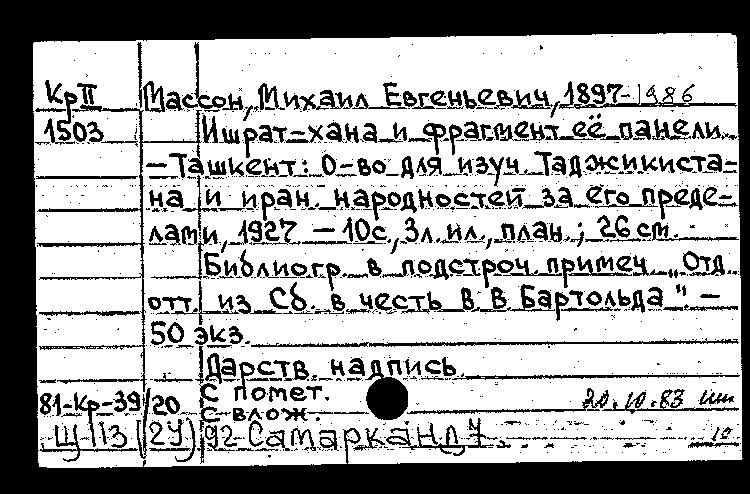 КрII Массон, Михаил Евгеньевич, 1897-1986
1503 Ишрат-хана и фрагмент её панели.
— Ташкент: О-во для изуч. Таджикиста-
на и иран. народностей за его преде-
лами, 1927 — 10с., 3л. ил., план.; 26 см. -
Библиогр. в подстроч. примеч. „Отд.
отт. из Сб. в честь В В Бартольда" —
50 экз.
Дарств. надпись.
С помет.
81-Кр-39/20 С влож. 20.10.83
Щ 113 (2У) 92-Самарканд 7 10